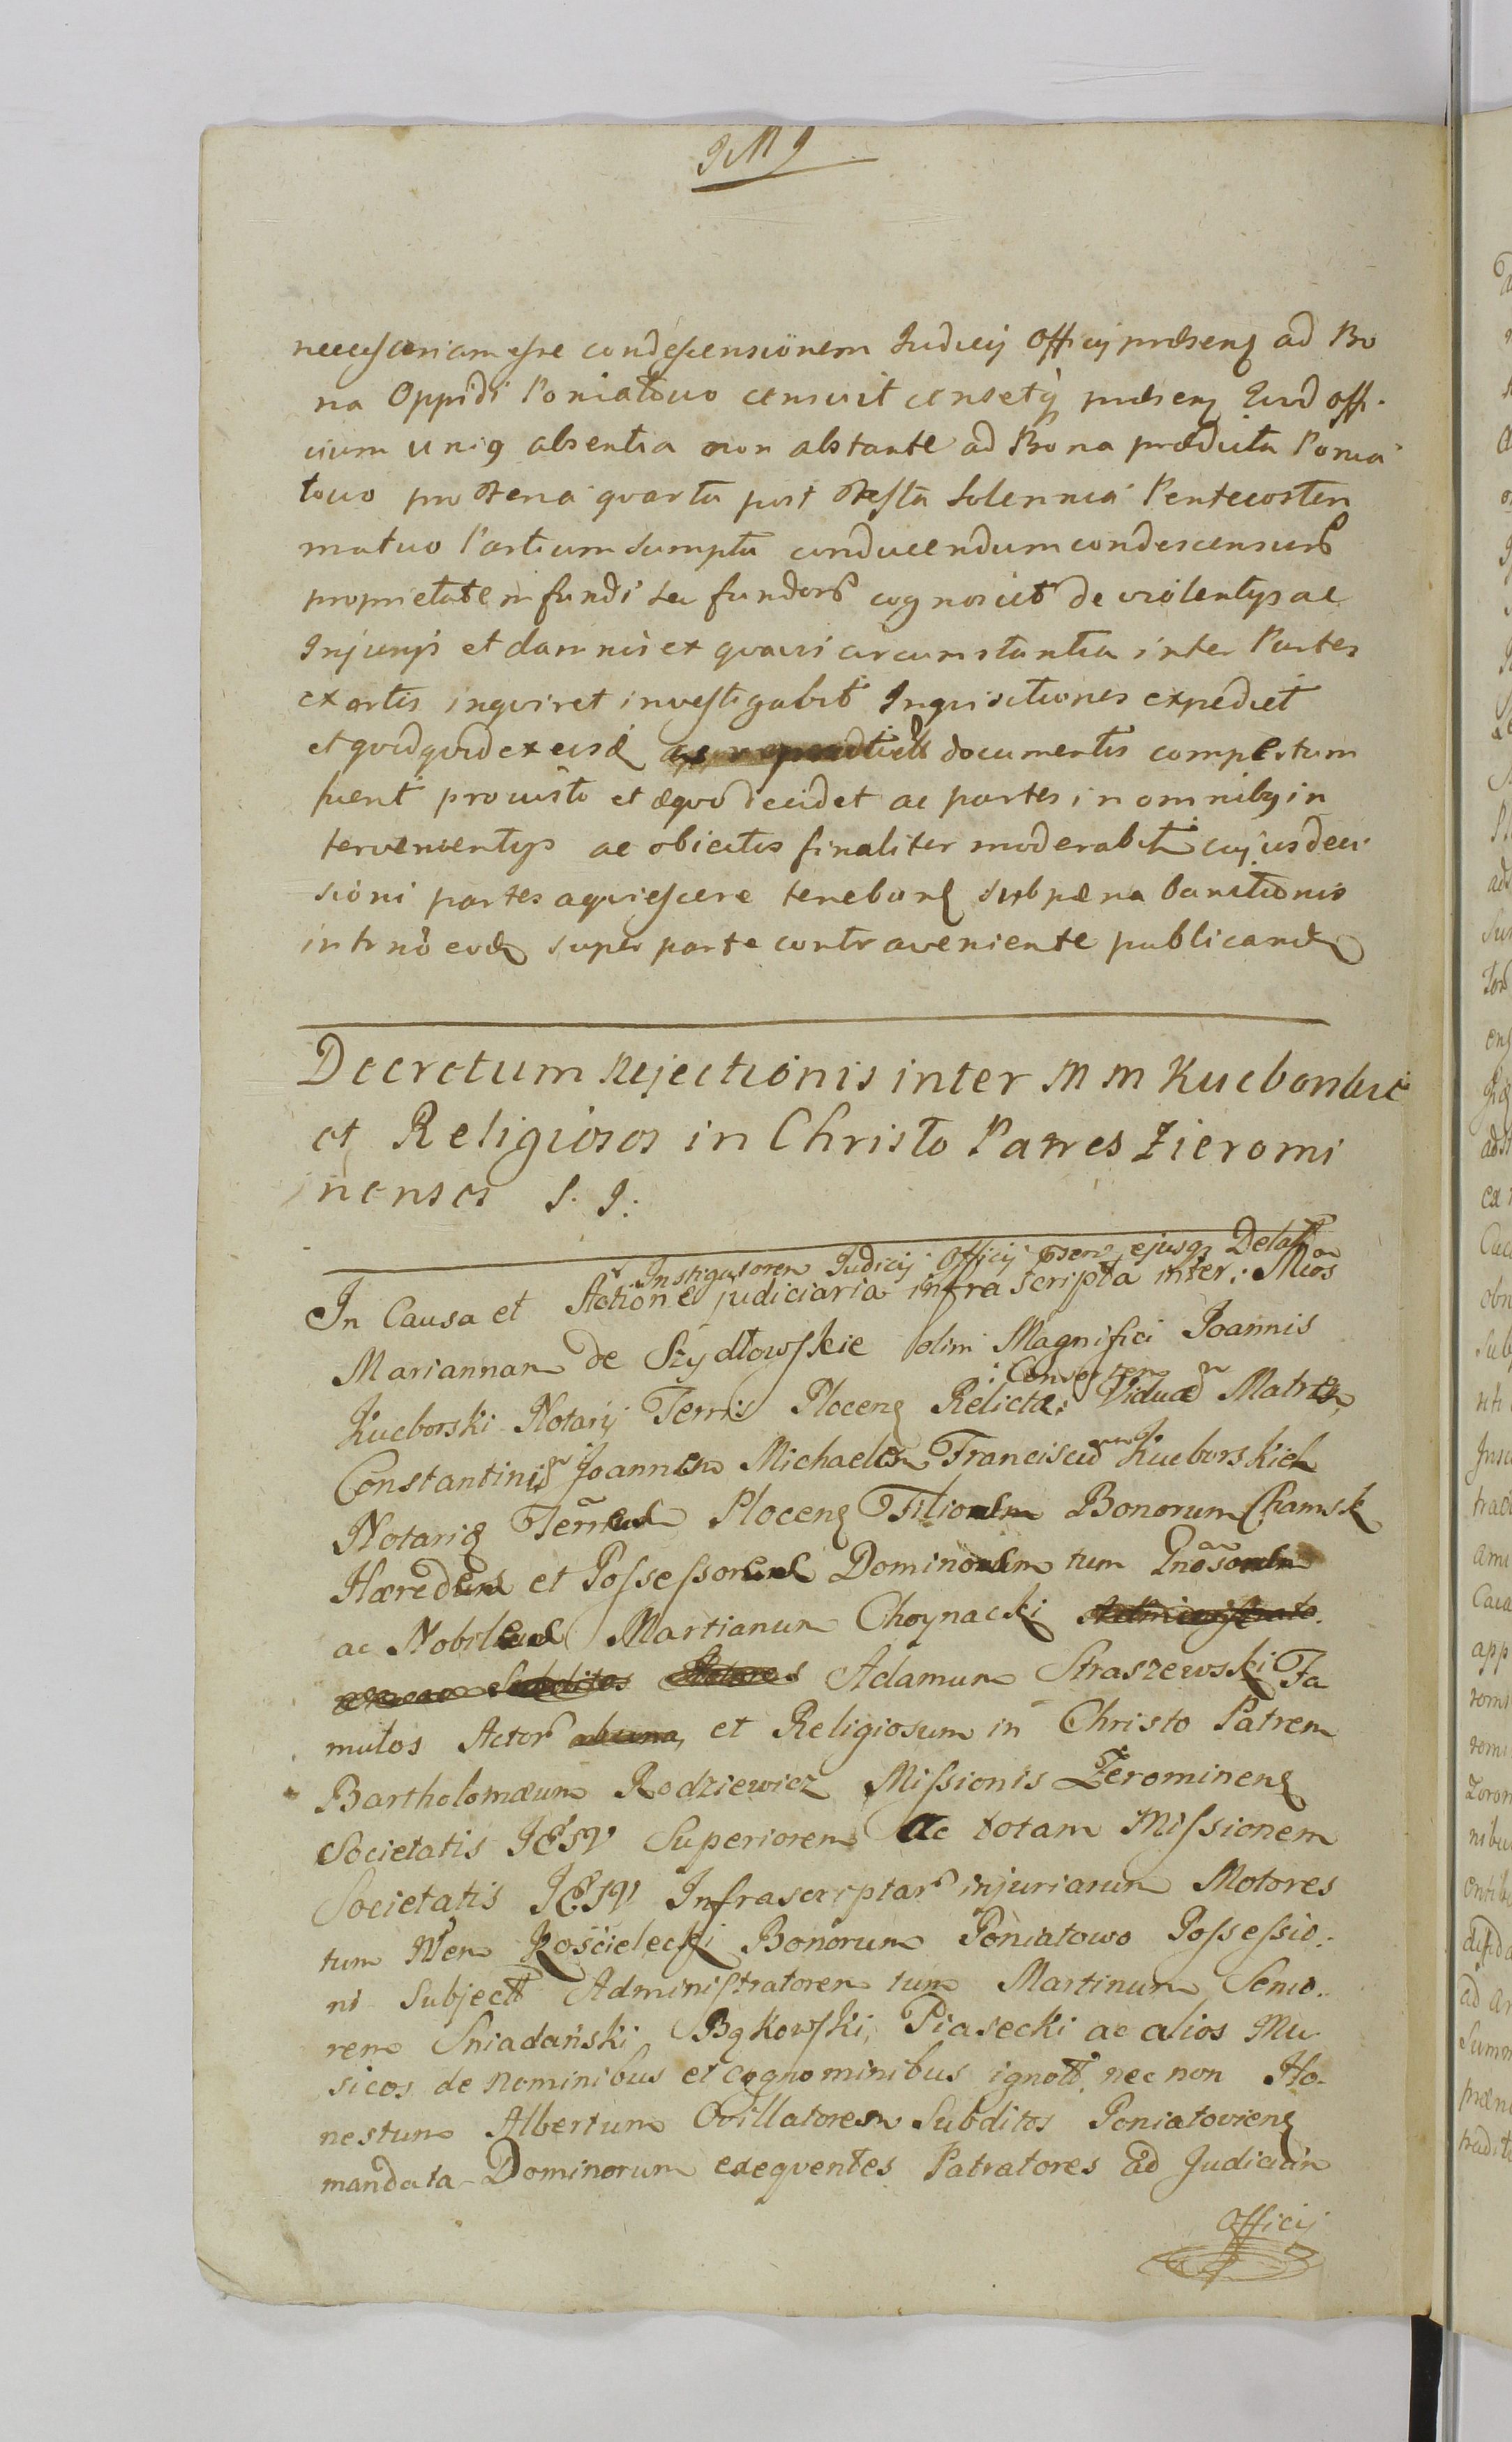 JMJ
necessariam esse condescensionem Judicij Officij præsenς ad Bo
na Oppidi Poniatowo censuit censetq præsenς Jud offi-
cium absentia non obstante ad Bona prædicta Ponia
towo pro feria quarta post festa Solennia Pentecosten
mutuo Partium sumptu conducendum condescensur
proprietatem fundi seu fundor cognoscet de violentys ac
Injurijs et damnis ex quavis circumstantia inter Partes
exortis inquiret investigabit Inquisitiones expediet
et quidquid ex eisd documentis compertum
fuerit pro justo et æquo decidet ac partes in omnibq in
tervenientys ac objectis finaliter moderabit cujus deci
sioni partes acquiescere tenebunς sub pæna banitionis
super parte contraveniente publicand
Decretum Rejectionis inter M M Kucborskie
et Religiosos in Christo Patres Zieromi
nenses S. J:
Instigatorem Judicij Officij ejusq Delat
In Causa et Actione judiciaria infra scripta inter: Mcos
Mariannam de Szydłowskie olim Magnifici Joannis
: Consortem
Kucborski Notarij Terris Plocenς Relictæ: Viduam Matrem
Constantinum Joannem Michaelem Franciscum Kucborskich
Notarij Plocenς Filios Bonorum Chamsk
Hæredes et Possessores Dominos tum
ac Nobiles Martianum Choynacki
Adamum Straszewski Fa
mulos Actor et Religiosum in Christo Patrem
Bartholomæum Rodziewicz Missionis Zerominenς
Societatis JESV Superiorem Ac totam Missionem
Societatis JESV Infrascriptar injuriarum Motores
tum Kościelecki Bonorum Poniatowo Possessio:
ni Subject Administratorem tum Martinum Senio-
rem Sniadański, Bąkowski, Piasecki ac alios Mu
sicos de Nominibus et cognominibus ignot, nec non Ho-
nestum Albertum Ovillatorem Subditos Poniatovienς
mandata Dominorum exequentes Patratores ad Judicium
Officij